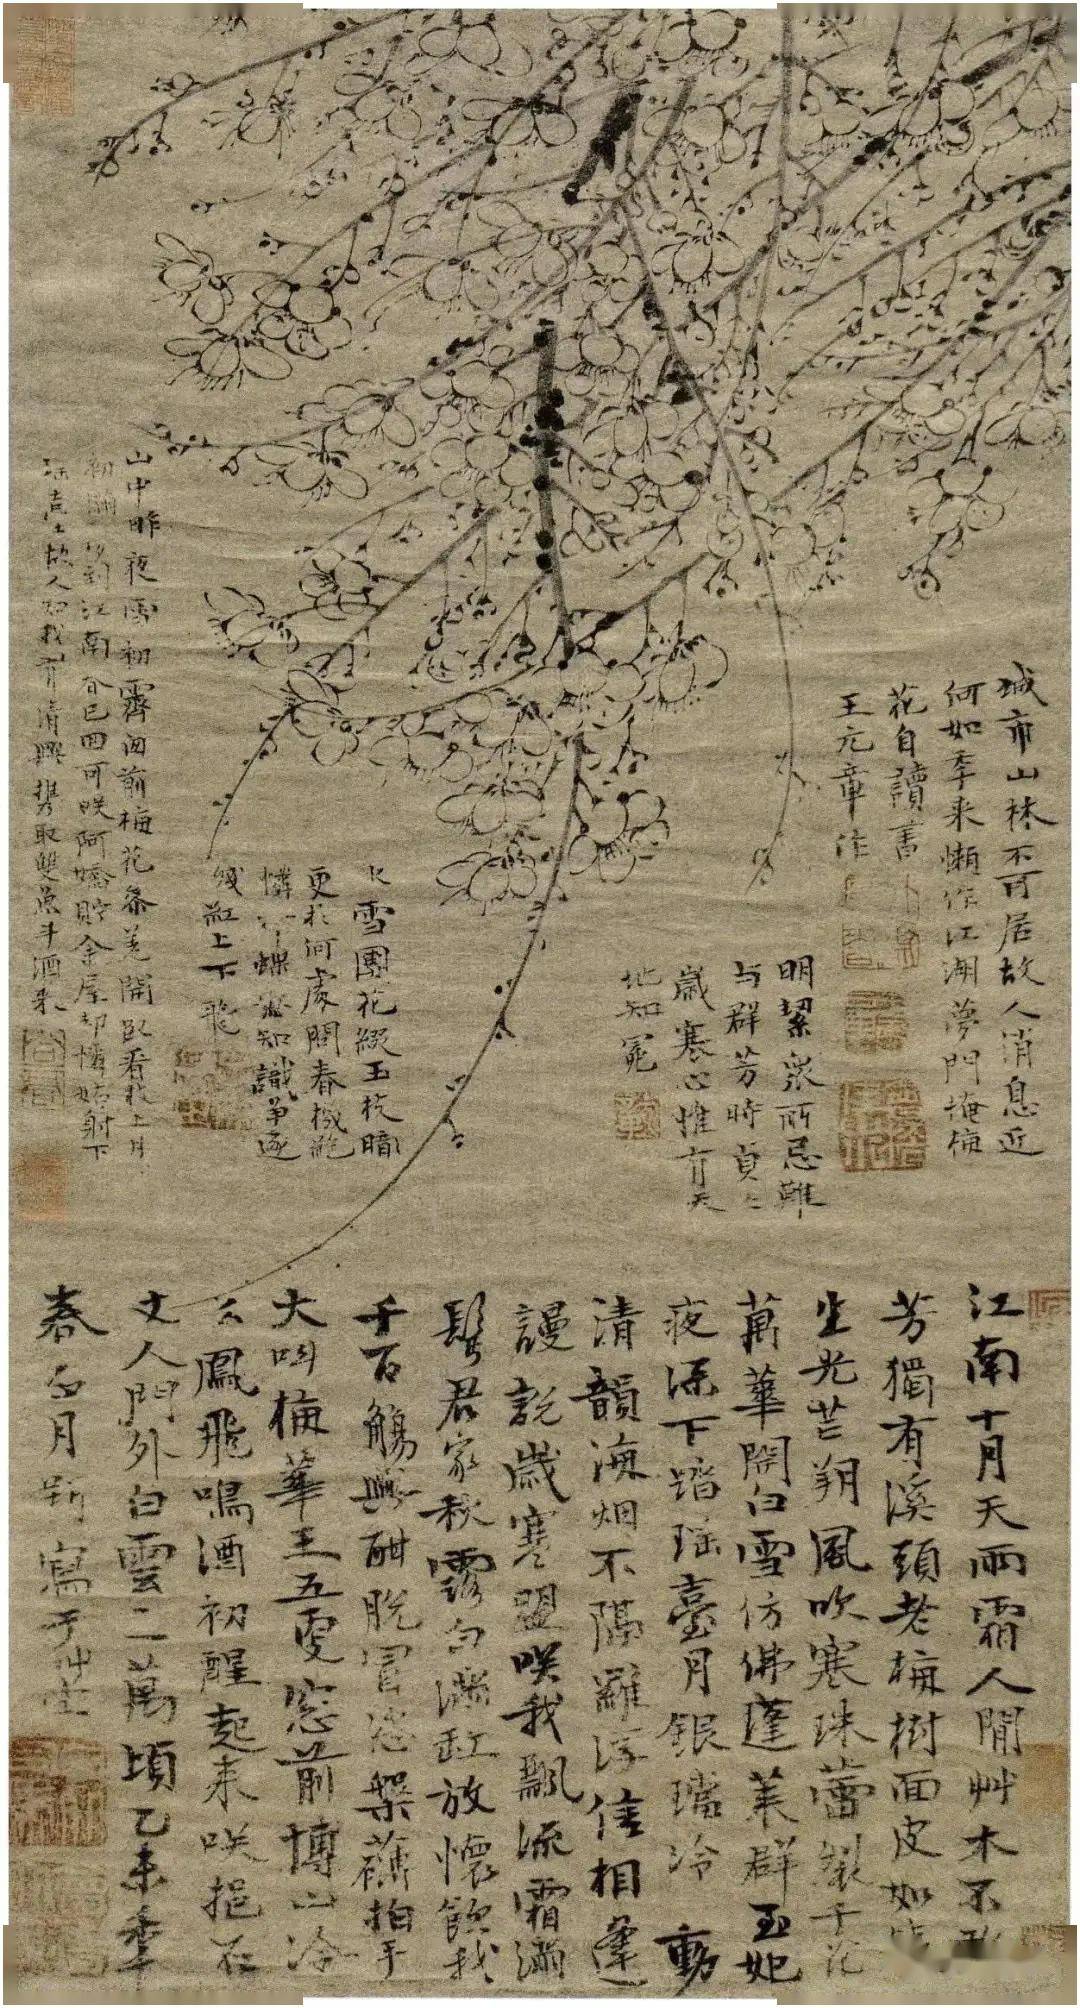 城市山林不可居故人消息近
何如年来懶作江湖夢門掩梅
花自讀書
王元章作
明潔衆所忌難
与群芳時貞〻
歲寒心惟有天
地知
雪團花綴玉枝暗
更於何處問春機
憐 蝶 知識争逐
殘缸上下飛
山中昨夜雪初霽囪前梅花參差開臥看枝上月
初 到江南春已回可咲阿嬌貯金屋却憐姑射下
瑶臺故人知我有清興携取雙魚斗酒来
江南十月天雨霜人間艸木不敢
芳獨有溪頭老梅樹面皮如鐵
生光芒朔風吹寒珠蕾裂千花
萬華開白雪仿佛蓬萊群玉妃
夜深下踏瑶臺月銀璫冷動
清韻海烟不隔羅浮信相逢
謾說歲寒盟咲我飄流霜滿
鬢君家秋露白滿缸放懷飲我
千百觴興酣脫冒恣槃礴拍手
大叫梅華王五更窓前博山冷
么鳳飛鳴酒初醒起来咲挹石
丈人門外白雲二萬頃乙未年
春正月 寫于艸堂